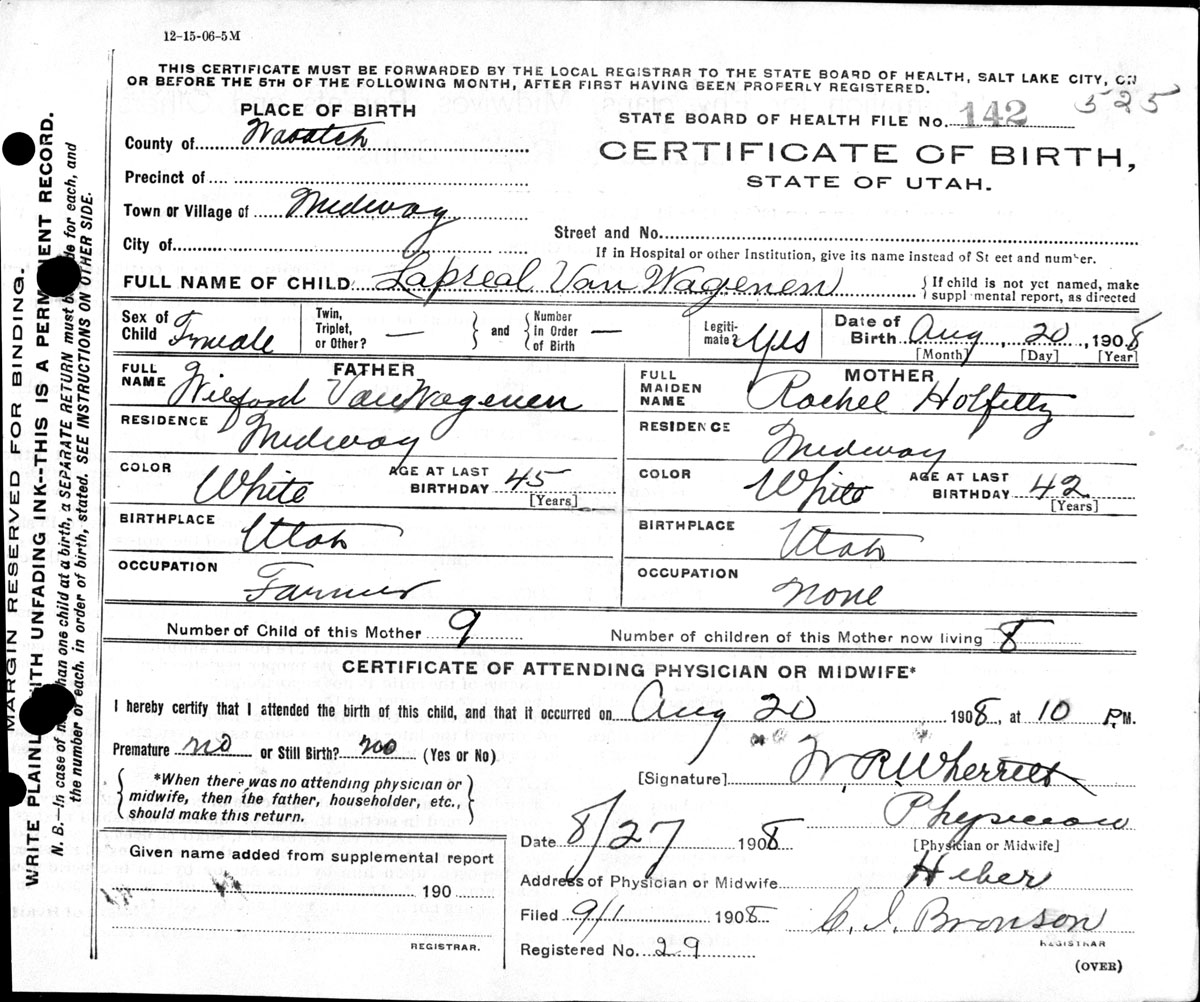 12-15-06-5M
THIS CERTIFICATE MUST BE FORWARDED BY THE LOCAL REGISTRAR TO THE STATE BOARD OF HEALTH, SALT LAKE CITY, ON
OR BEFORE THE 5TH OF THE FOLLOWING MONTH, AFTER FIRST HAVING BEEN PROPERLY REGISTERED.
525
PLACE OF BIRTH
STATE BOARD OF HEALTH FILE No. 142
County of Wasatch
CERTIFICATE OF BIRTH,
STATE OF UTAH.
Precinct of
Town or Village of Midway
Street and No.
City of
If in Hospital or other Institution, give its name instead of St eet and number.
FULL NAME OF CHILD Lapreal Van Wagenen { If child is not yet named, make
suppl mental report, as directed
Sex of Child Fmeale
Twin, Triplet, or Other? — } and { Number in Order of Birth —
Legiti-mate? Yes
Date of Birth Aug 20, 1908
[Month] [Day] [Year]
FATHER
FULL NAME Wilford Van Wagenen
RESIDENCE Midway
COLOR White AGE AT LAST BIRTHDAY 45
[Years]
BIRTHPLACE Utah
OCCUPATION Farmer
MOTHER
FULL MAIDEN NAME Rachel Holfeltz
RESIDENCE Midway
COLOR White AGE AT LAST BIRTHDAY 42
[Years]
BIRTHPLACE Utah
OCCUPATION None
Number of Child of this Mother 9 Number of children of this Mother now living 8
CERTIFICATE OF ATTENDING PHYSICIAN OR MIDWIFE*
I hereby certify that I attended the birth of this child, and that it occurred on Aug 20 1908, at 10 P.M.
Premature no or Still Birth? no (Yes or No)
{ *When there was no attending physician or
midwife, then the father, householder, etc.,
should make this return. }
[Signature] W R Wherritt
Physician
[Physician or Midwife]
Date 8/27 1908
Address of Physician or Midwife Heber
Filed 9/1 1908 C. I. Bronson
REGISTRAR
Registered No. 29
(OVER)
Given name added from supplemental report
190
REGISTRAR.
MARGIN RESERVED FOR BINDING.
WRITE PLAINL ITH UNFADING INK--THIS IS A PERM ENT RECORD.
N. B.—In case of m than one child at a birth, a SEPARATE RETURN must b de for each, and
the number of each, in order of birth, stated. SEE INSTRUCTIONS ON OTHER SIDE.